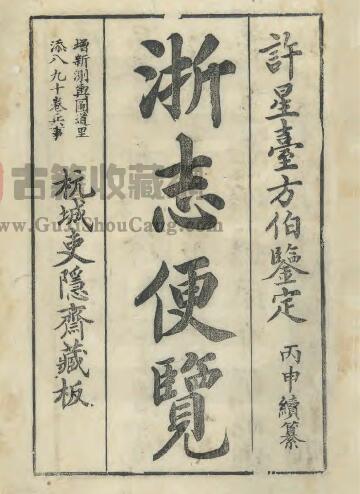 許星臺方伯鑒定
丙申續纂
浙志便覽
增新測輿圖道里
添八九十卷兵事
杭城吏隱齋藏板
古籍收藏
www.GuJiShouCang.com